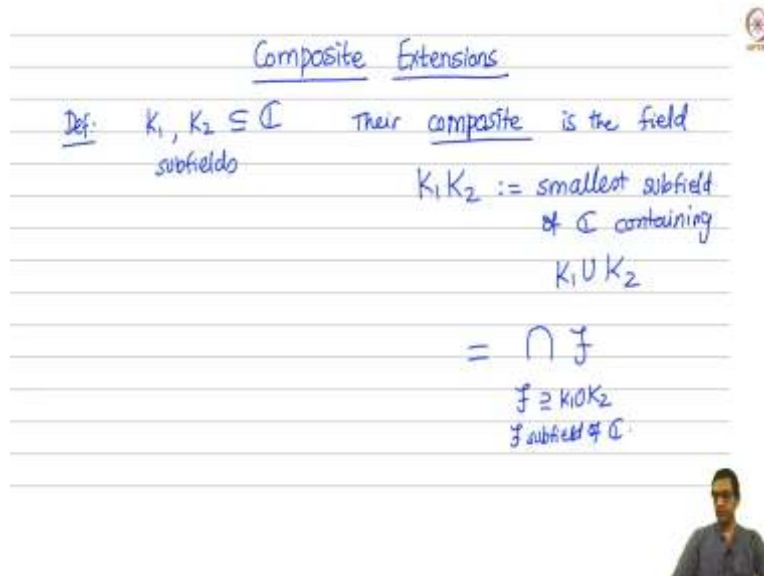 Composite Extensions
Def: K₁, K₂ ⊆ ℂ Their composite is the field
subfields
K₁K₂ := smallest subfield
of ℂ containing
K₁ ∪ K₂
= ⋂ F
F ⊇ K₁∪K₂
F subfield of ℂ.